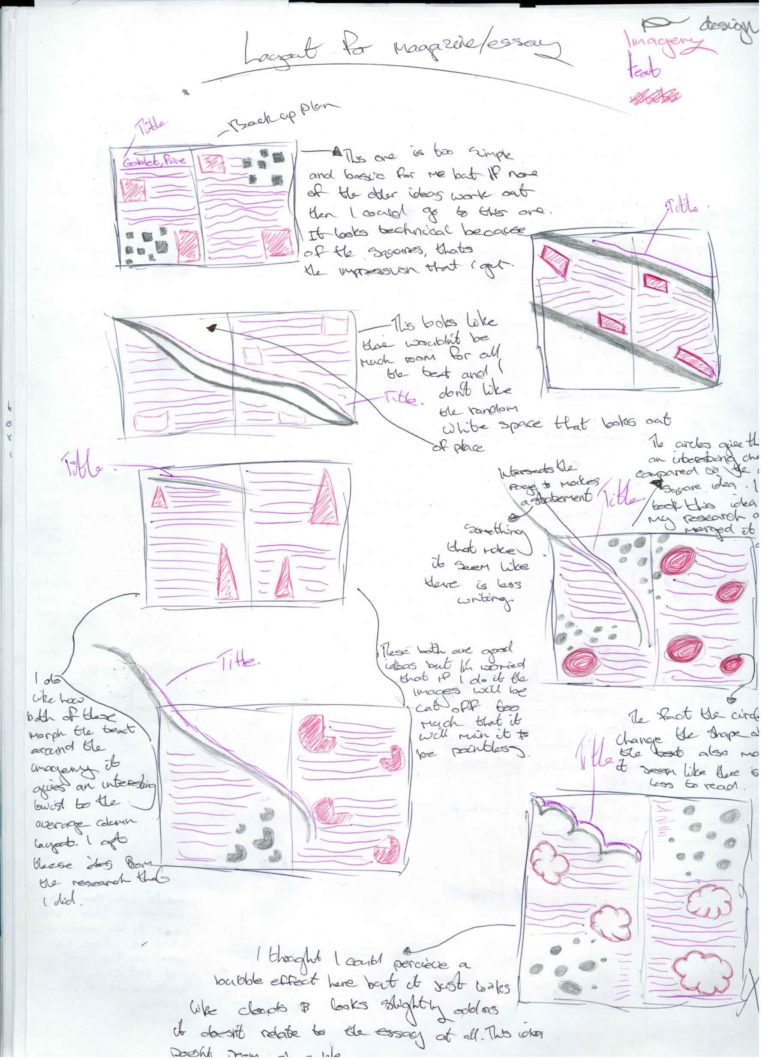 design
Imagery
text
Layout for magazine/essay
Title
Back up plan
This one is too simple
and basic for me but if none
of the other ideas work out
then I could go to this one.
It looks technical because
of the squares, thats
the impression that I get.
Title
This looks like
there wouldn't be
much room for all
the text and I
don't like
the random
white space that looks out
of place
Title
Title
Intersects the
page & makes
a statement
Title
Something
that makes
it seem like
there is less
writing.
The circles give th
an interesting cha
compared to the
square idea. I
took this idea
my research a
merged it
These both are good
ideas but I'm worried
that if I do it the
images will be
cut off too
much that it
will ruin it to
be pointless.
Title
I do
like how
both of these
morph the text
around the
imagery it
gives an interesting
twist to the
average column
layout. I got
these ides from
the research that
I did.
The fact the circle
change the shape o
the text also ma
it seem like there is
less to read.
Title
I thought I could percieve a
bubble effect here but it just looks
like clouds & looks slightly odd as
it doesn't relate to the essay at all. This idea